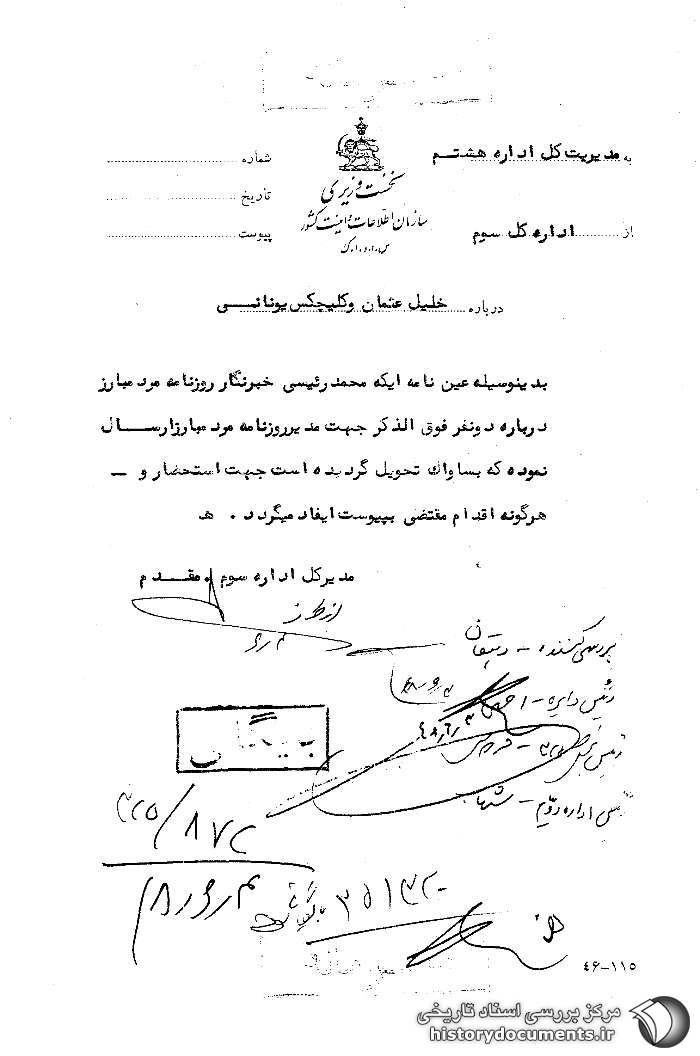 به مدیریت کل اداره هشتم
از اداره کل سوم
نخست وزیری
سازمان اطلاعات و امنیت کشور
س.ا.و.ا.ک
شماره
تاریخ
پیوست
درباره خلیل عثمان وکلیچکس یونانی
بدینوسیله عین نامه ایکه محمد رئیسی خبرنگار روزنامه مرد مبارز
درباره دونفر فوق الذکر جهت مدیرروزنامه مرد مبارز ارسال
نموده که بساواك تحویل گردیده است جهت استحضار و –
هرگونه اقدام مقتضی بپیوست ایفاد میگردد . هـ
مدیرکل اداره سوم . مقدم
از طرف
بررسی کننده -
رئیس دایره -
رئیس بخش
رئیس اداره دوم -
بایگانی
۳۲۵/۸۷۲
۳۵۱۳۲۰
۴۶-۱۱۵
مرکز بررسی اسناد تاریخی
historydocuments.ir